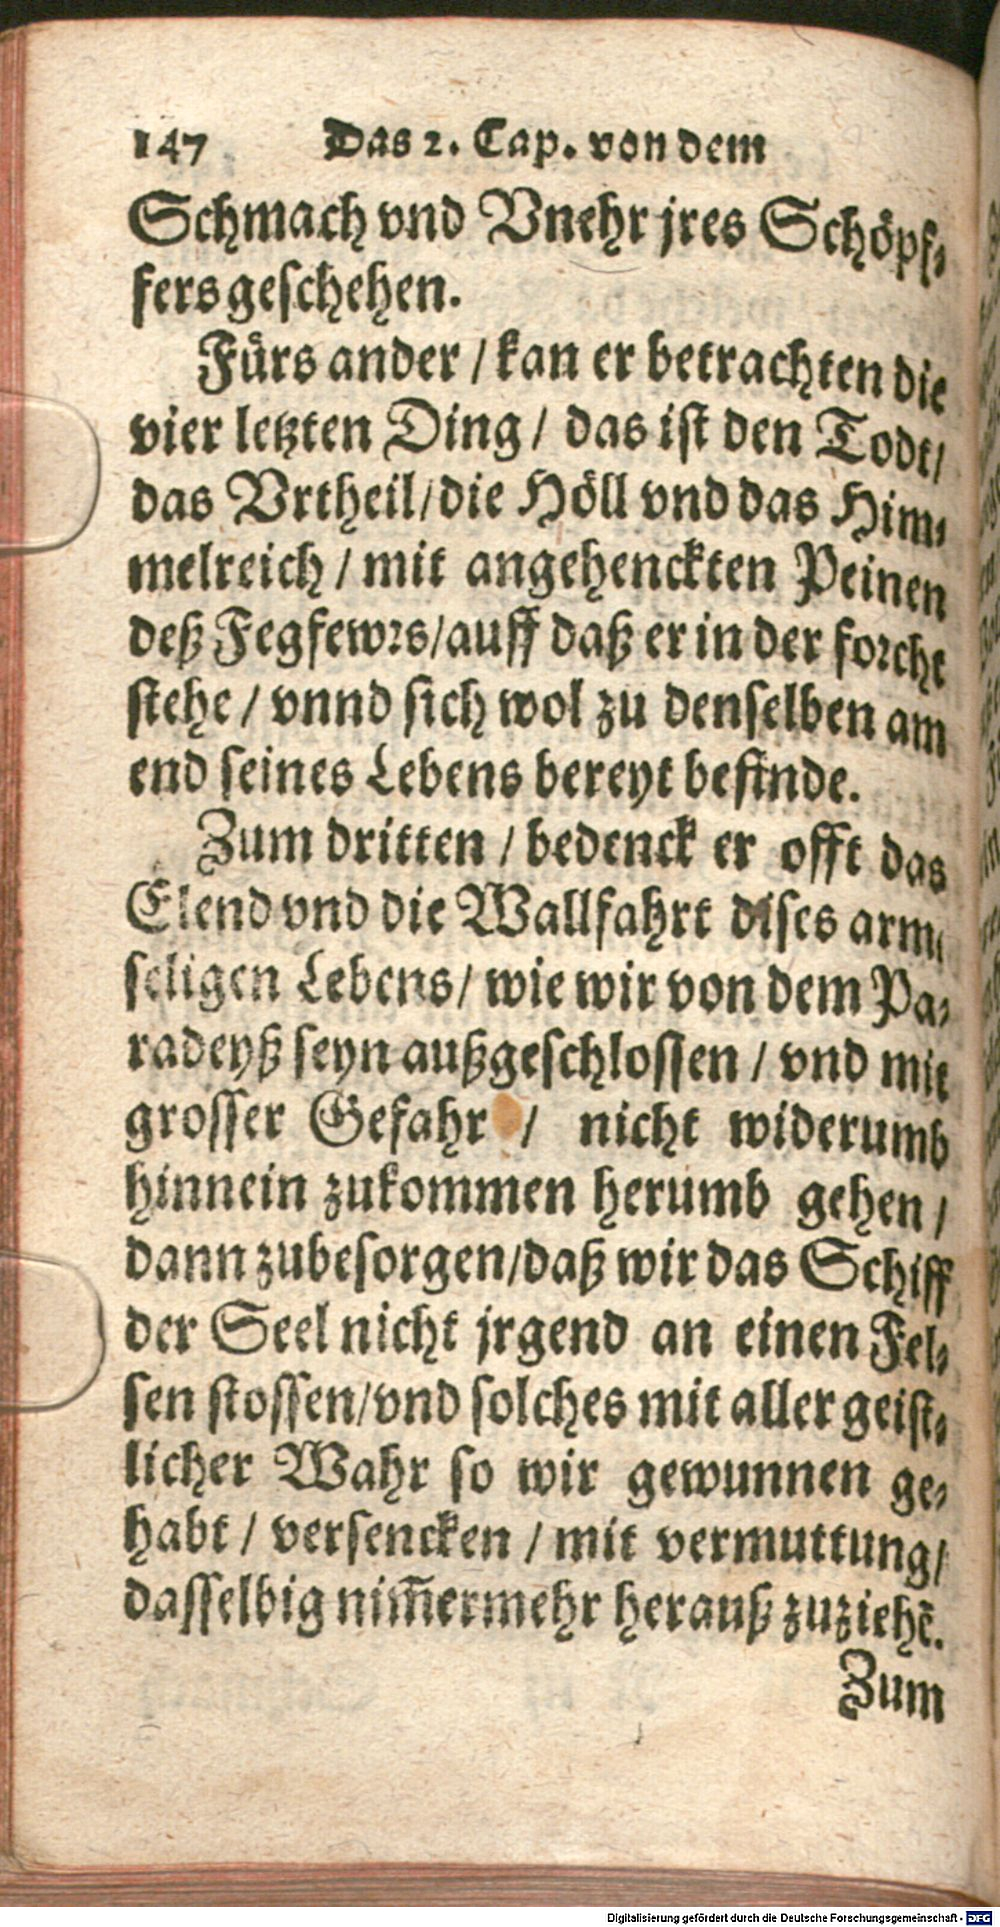 147 Das 2. Cap. von dem
Schmach vnd Vnehr jres Schöpf⸗
fers geschehen.
Fürs ander / kan er betrachten die
vier letzten Ding / das ist den Todt/
das Vrtheil/die Höll vnd das Him⸗
melreich / mit angehenckten Peinen
deß Fegfewrs/auff daß er in der forcht
stehe / vnnd sich wol zu denselben am
end seines Lebens bereyt befinde.
Zum dritten / bedenck er offt das
Elend vnd die Wallfahrt dises arm⸗
seligen Lebens/ wie wir von dem Pa⸗
radeyß seyn außgeschlossen / vnd mit
grosser Gefahr / nicht widerumb
hinnein zukommen herumb gehen /
dann zubesorgen/daß wir das Schiff
der Seel nicht jrgend an einen Fel⸗
sen stossen/vnd solches mit aller geist⸗
licher Wahr so wir gewunnen ge⸗
habt / versencken / mit vermuttung/
dasselbig nim̃ermehr herauß zuziehẽ.
Zum
Digitalisierung gefördert durch die Deutsche Forschungsgemeinschaft - DFG